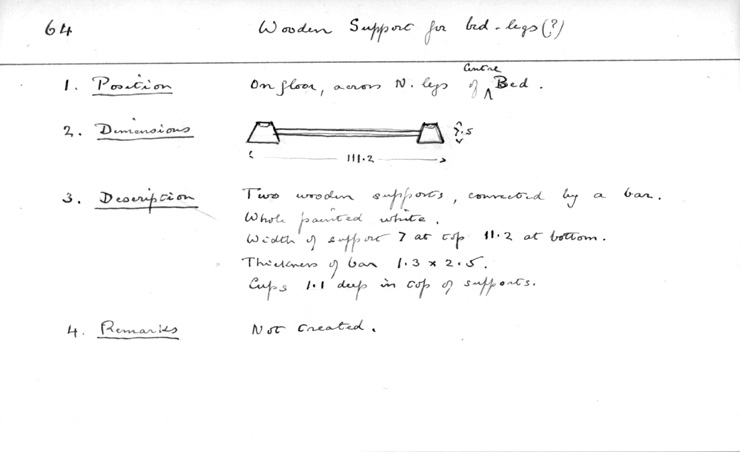 64 Wooden Support for bed-legs (?)
1. Position On floor, across N. legs of ^ Centre Bed.
2. Dimensions
7.5
111.2
3. Description Two wooden supports, connected by a bar.
Whole painted white.
Width of support 7 at top 11.2 at bottom.
Thickness of bar 1.3 x 2.5.
Cups 1.1 deep in top of supports.
4. Remarks Not treated.